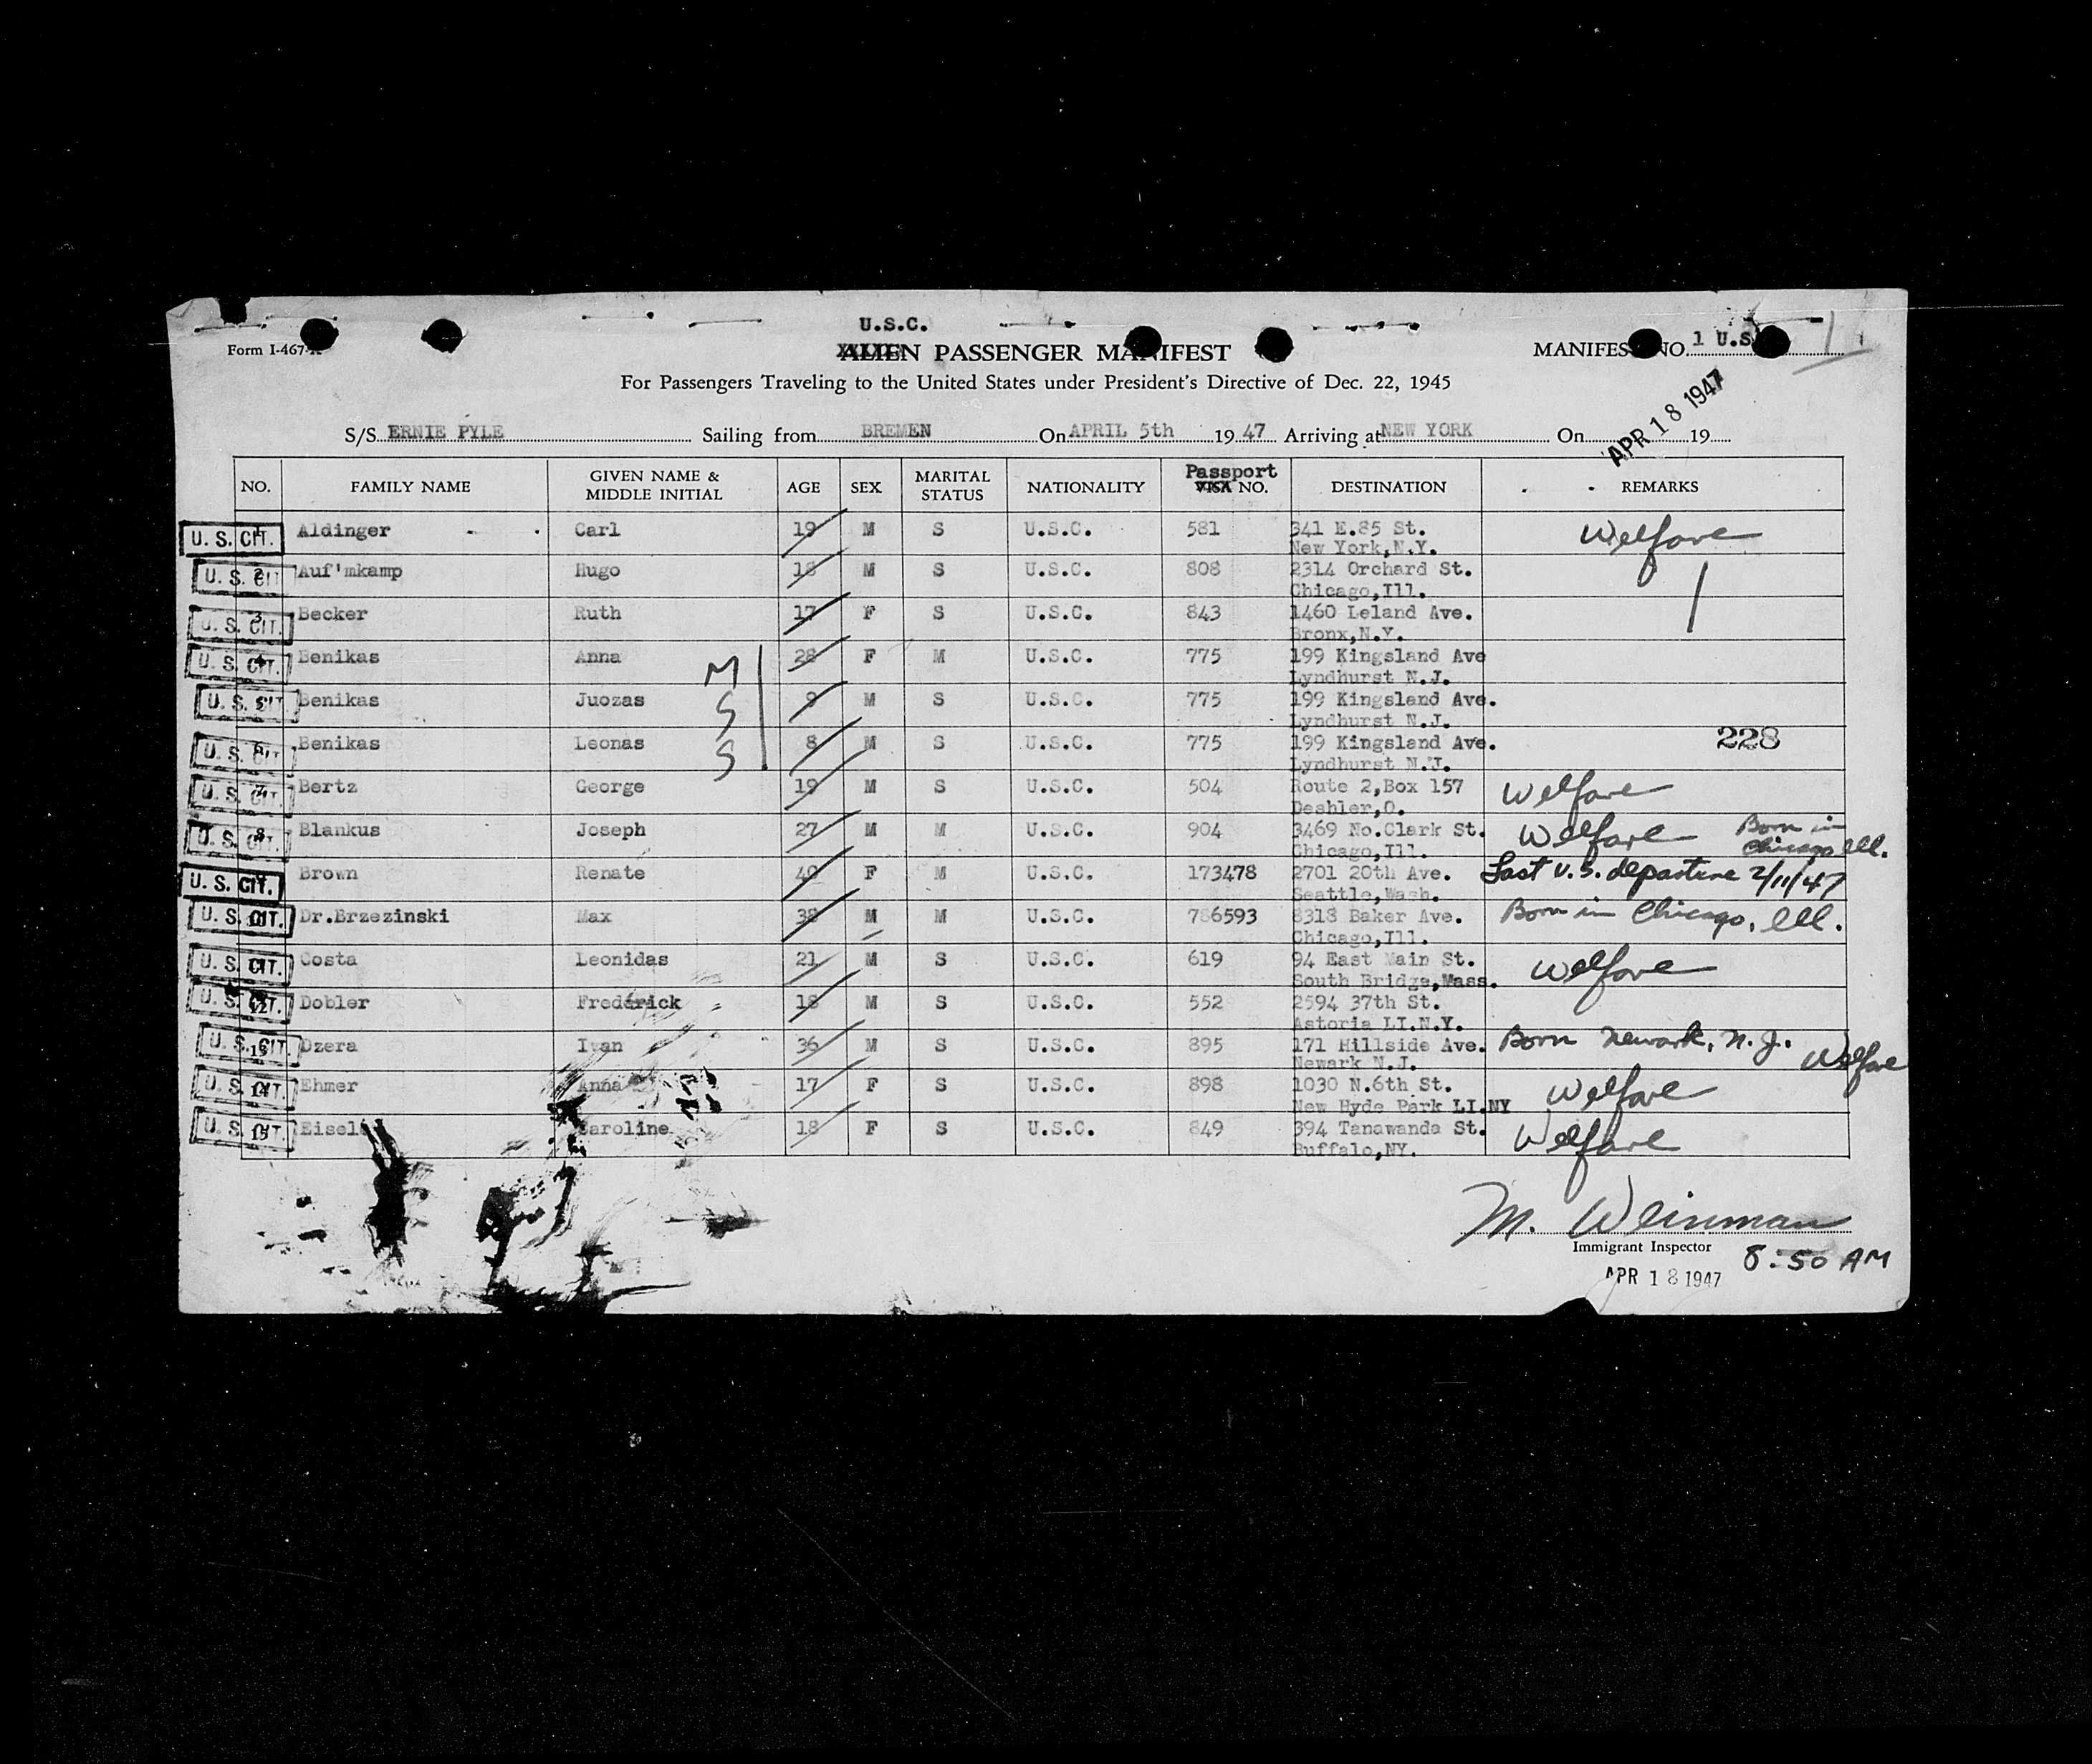 U.S.C.
Form I-467-
ALIEN PASSENGER MANIFEST
MANIFEST NO. 1 U.S
For Passengers Traveling to the United States under President's Directive of Dec. 22, 1945
APR 18 1947
S/S ERNIE PYLE Sailing from BREMEN On APRIL 5th 19 47 Arriving at NEW YORK On 19
NO. FAMILY NAME GIVEN NAME & MIDDLE INITIAL AGE SEX MARITAL STATUS NATIONALITY Passport VISA NO. DESTINATION REMARKS
U. S. CIT. 1 Aldinger Carl 19 M S U.S.C. 581 341 E.85 St. Welfare
New York,N.Y.
U. S. CIT. 2 Auf'mkamp Hugo 18 M S U.S.C. 808 2314 Orchard St.
Chicago,Ill.
U. S. CIT. 3 Becker Ruth 17 F S U.S.C. 843 1460 Leland Ave.
Bronx,N.Y.
U. S. CIT. 4 Benikas Anna M 28 F M U.S.C. 775 199 Kingsland Ave
Lyndhurst N.J.
U. S. CIT. 5 Benikas Juozas S 9 M S U.S.C. 775 199 Kingsland Ave.
Lyndhurst N.J.
U. S. CIT. 6 Benikas Leonas S 8 M S U.S.C. 775 199 Kingsland Ave. 228
Lyndhurst N.J.
U. S. CIT. 7 Bertz George 19 M S U.S.C. 504 Route 2,Box 157 Welfare
Deshler,O.
U. S. CIT. 8 Blankus Joseph 27 M M U.S.C. 904 3469 No.Clark St. Welfare Born in
Chicago,Ill. Chicago Ill.
U. S. CIT. 9 Brown Renate 40 F M U.S.C. 173478 2701 20th Ave. Last U.S. departure 2/11/47
Seattle,Wash.
U. S. CIT. 10 Dr.Brzezinski Max 38 M M U.S.C. 786593 8318 Baker Ave. Born in Chicago, Ill.
Chicago,Ill.
U. S. CIT. 11 Costa Leonidas 21 M S U.S.C. 619 94 East Main St. Welfare
South Bridge,Mass.
U. S. CIT. 12 Dobler Frederick 18 M S U.S.C. 552 2594 37th St.
Astoria LI.N.Y.
U. S. CIT. 13 Dzera Ivan 36 M S U.S.C. 895 171 Hillside Ave. Born Newark, N.J. Welfare
Newark N.J.
U. S. CIT. 14 Ehmer Anna 17 F S U.S.C. 898 1030 N.6th St. Welfare
New Hyde Park LI.NY
U. S. CIT. 15 Eisele Caroline 18 F S U.S.C. 849 394 Tanawanda St. Welfare
Buffalo,NY.
M. Weinman
Immigrant Inspector 8:50 AM
APR 18 1947